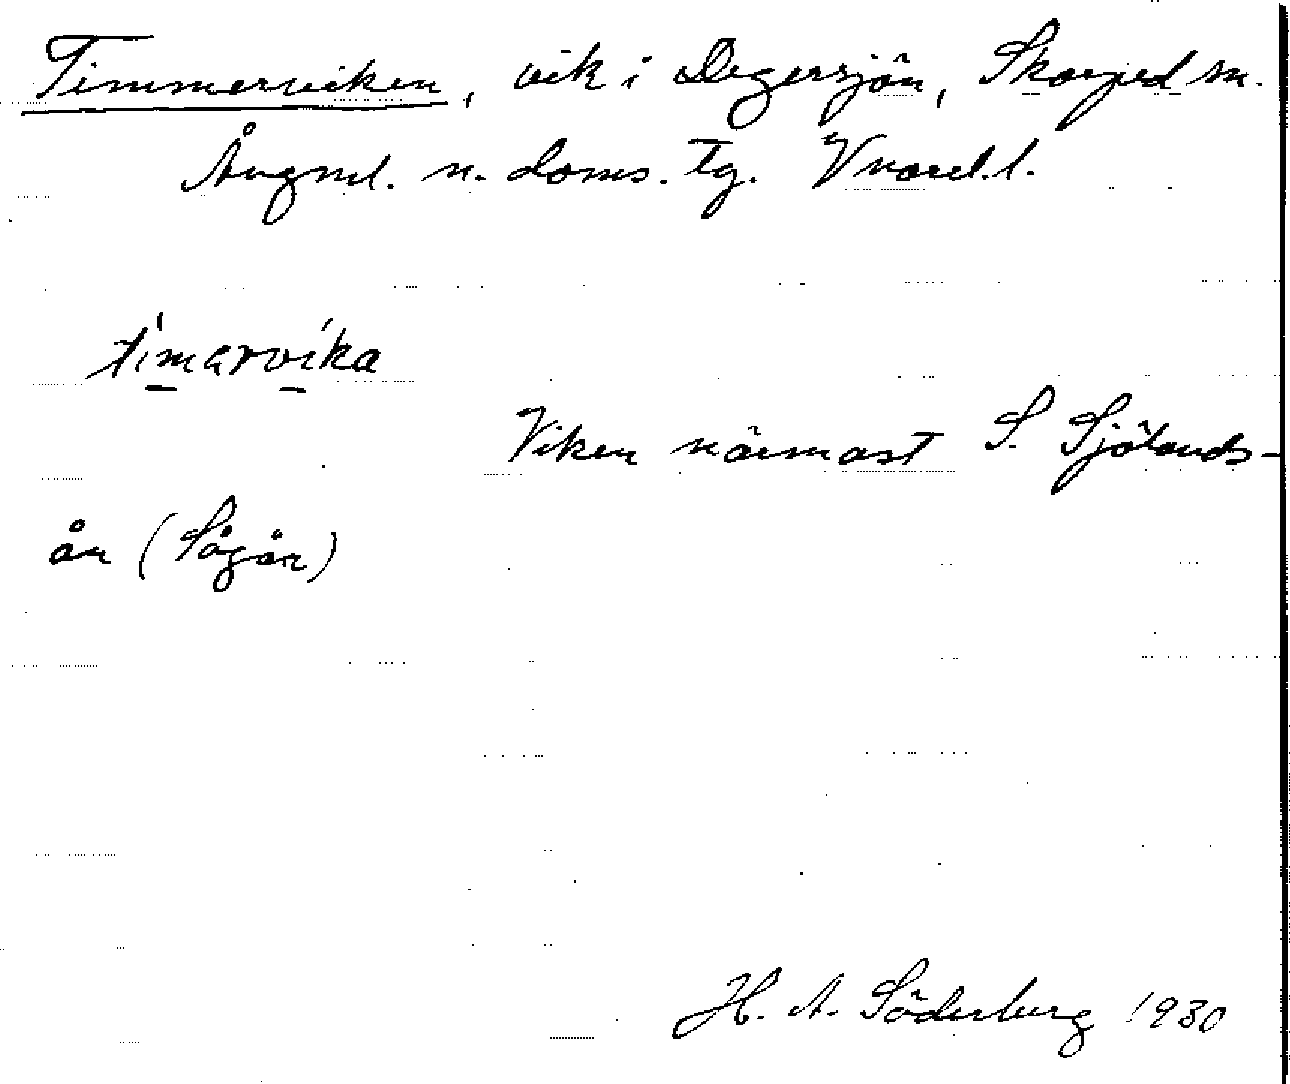 Timmerviken, vik i Degersjön, Skorped sn.
Ångml. n. doms. tg. Vnorrl. l.
timarvika
Viken närmast S. Sjölands-
ån (Sågån)
H. A. Söderberg 1930